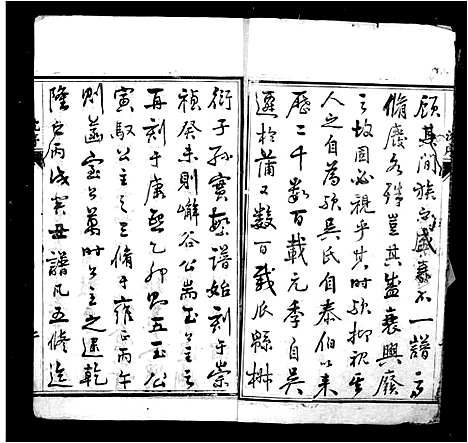 顧其間族之盛衰不一譜之
脩廢各殊豈其盛衰興廢
之故固必視乎其時歟抑視其
人之自為歟吳氏自泰伯以來
歷二千數百載元季自吳
遷於蒲又數百載瓜縣椒
衍子孫實繁譜始刻于崇
禎癸未則嶰谷公端玉公主之
再刻于康熙乙卯則五玉公
寅馭公主之三脩于雍正丙午
則菡宮公萬時公主之逮乾
隆戶丙戌實毋譜凡五脩迄